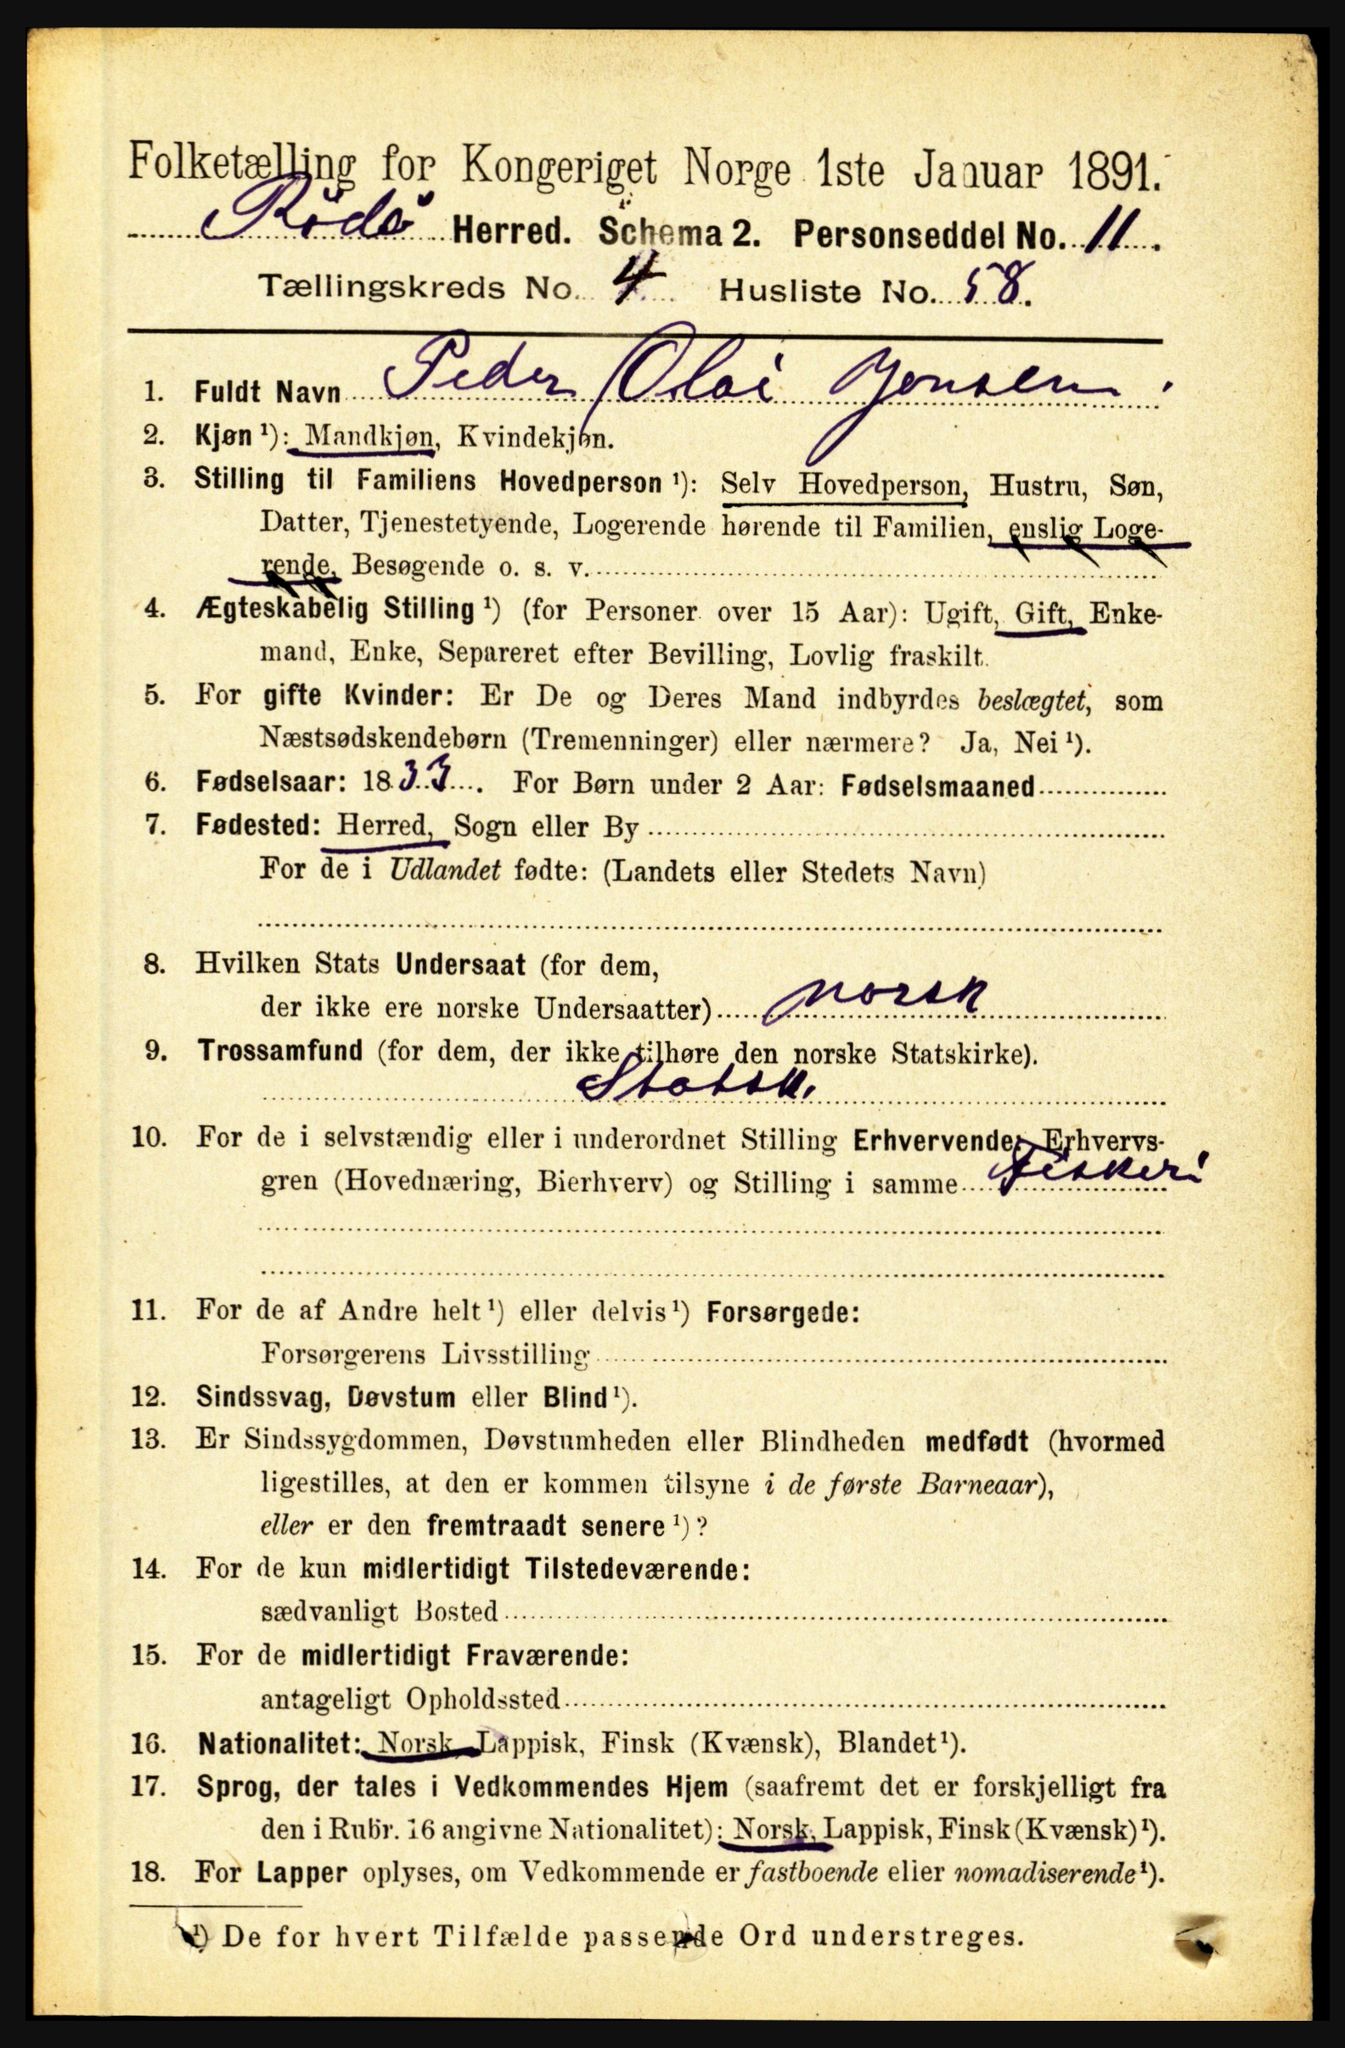 Folketælling for Kongeriget Norge 1ste Januar 1891.
Rödö Herred. Schema 2. Personseddel No. 11.
Tællingskreds No. 4 Husliste No. 58.
1. Fuldt Navn Peder Olai Jensen.
2. Kjøn ¹): Mandkjøn, Kvindekjøn.
3. Stilling til Familiens Hovedperson ¹): Selv Hovedperson, Hustru, Søn,
Datter, Tjenestetyende, Logerende hørende til Familien, enslig Loge-
rende, Besøgende o. s. v.
4. Ægteskabelig Stilling ¹) (for Personer over 15 Aar): Ugift, Gift, Enke-
mand, Enke, Separeret efter Bevilling, Lovlig fraskilt.
5. For gifte Kvinder: Er De og Deres Mand indbyrdes beslægtet, som
Næstsødskendebørn (Tremenninger) eller nærmere? Ja, Nei ¹).
6. Fødselsaar: 1833. For Børn under 2 Aar: Fødselsmaaned
7. Fødested: Herred, Sogn eller By
For de i Udlandet fødte: (Landets eller Stedets Navn)
8. Hvilken Stats Undersaat (for dem,
der ikke ere norske Undersaatter) norsk
9. Trossamfund (for dem, der ikke tilhøre den norske Statskirke).
Statsk.
10. For de i selvstændig eller i underordnet Stilling Erhvervende: Erhvervs-
gren (Hovednæring, Bierhverv) og Stilling i samme Fiskeri
11. For de af Andre helt ¹) eller delvis ¹) Forsørgede:
Forsørgerens Livsstilling
12. Sindssvag, Døvstum eller Blind ¹).
13. Er Sindssygdommen, Døvstumheden eller Blindheden medfødt (hvormed
ligestilles, at den er kommen tilsyne i de første Barneaar),
eller er den fremtraadt senere ¹)?
14. For de kun midlertidigt Tilstedeværende:
sædvanligt Bosted
15. For de midlertidigt Fraværende:
antageligt Opholdssted
16. Nationalitet: Norsk, Lappisk, Finsk (Kvænsk), Blandet ¹).
17. Sprog, der tales i Vedkommendes Hjem (saafremt det er forskjelligt fra
den i Rubr. 16 angivne Nationalitet): Norsk, Lappisk, Finsk (Kvænsk) ¹).
18. For Lapper oplyses, om Vedkommende er fastboende eller nomadiserende ¹).
¹) De for hvert Tilfælde passende Ord understreges.